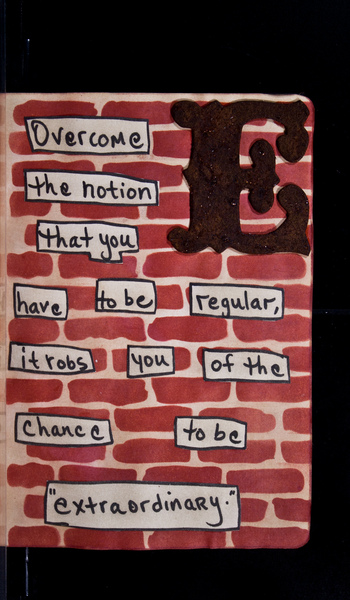 E
Overcome
the notion
that you
have to be regular,
it robs you of the
chance to be
"extraordinary."